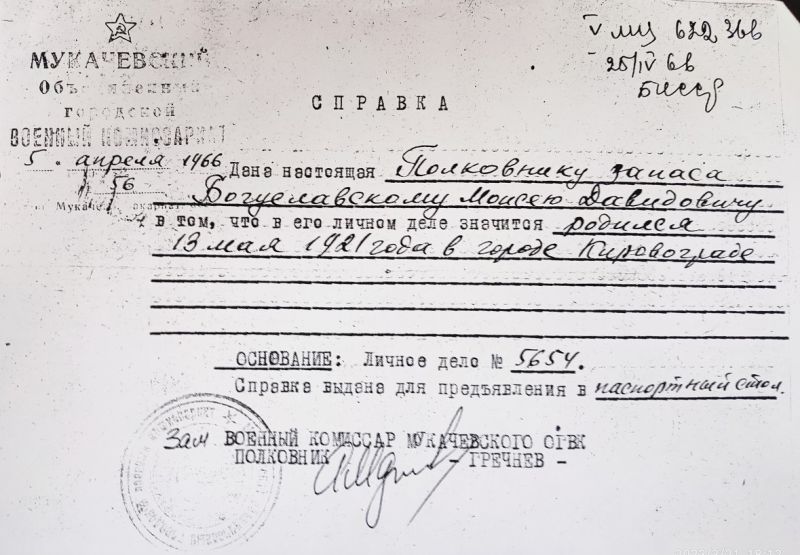 V МЦ 672366
25/IV 66
МУКАЧЕВСКИЙ
Объединенный
городской
ВОЕННЫЙ КОМИССАРИАТ
5. апреля 1966
56
СПРАВКА
Дана настоящая Полковнику запаса
Богуславскому Моисею Давидовичу
в том, что в его личном деле значится родился
13 мая 1921 года в городе Кировограде
ОСНОВАНИЕ: Личное дело № 5654.
Справка выдана для предъявления в паспортный стол.
Зам ВОЕННЫЙ КОМИССАР МУКАЧЕВСКОГО ОГВК
ПОЛКОВНИК - ГРЕЧНЕВ -